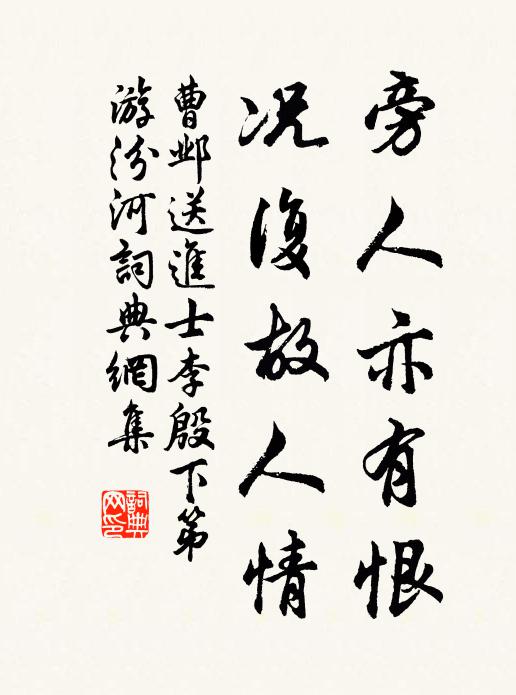 旁人亦有恨
况復故人情
曹邺送進士李殷下第
游汾河詞典網集
詞典网印